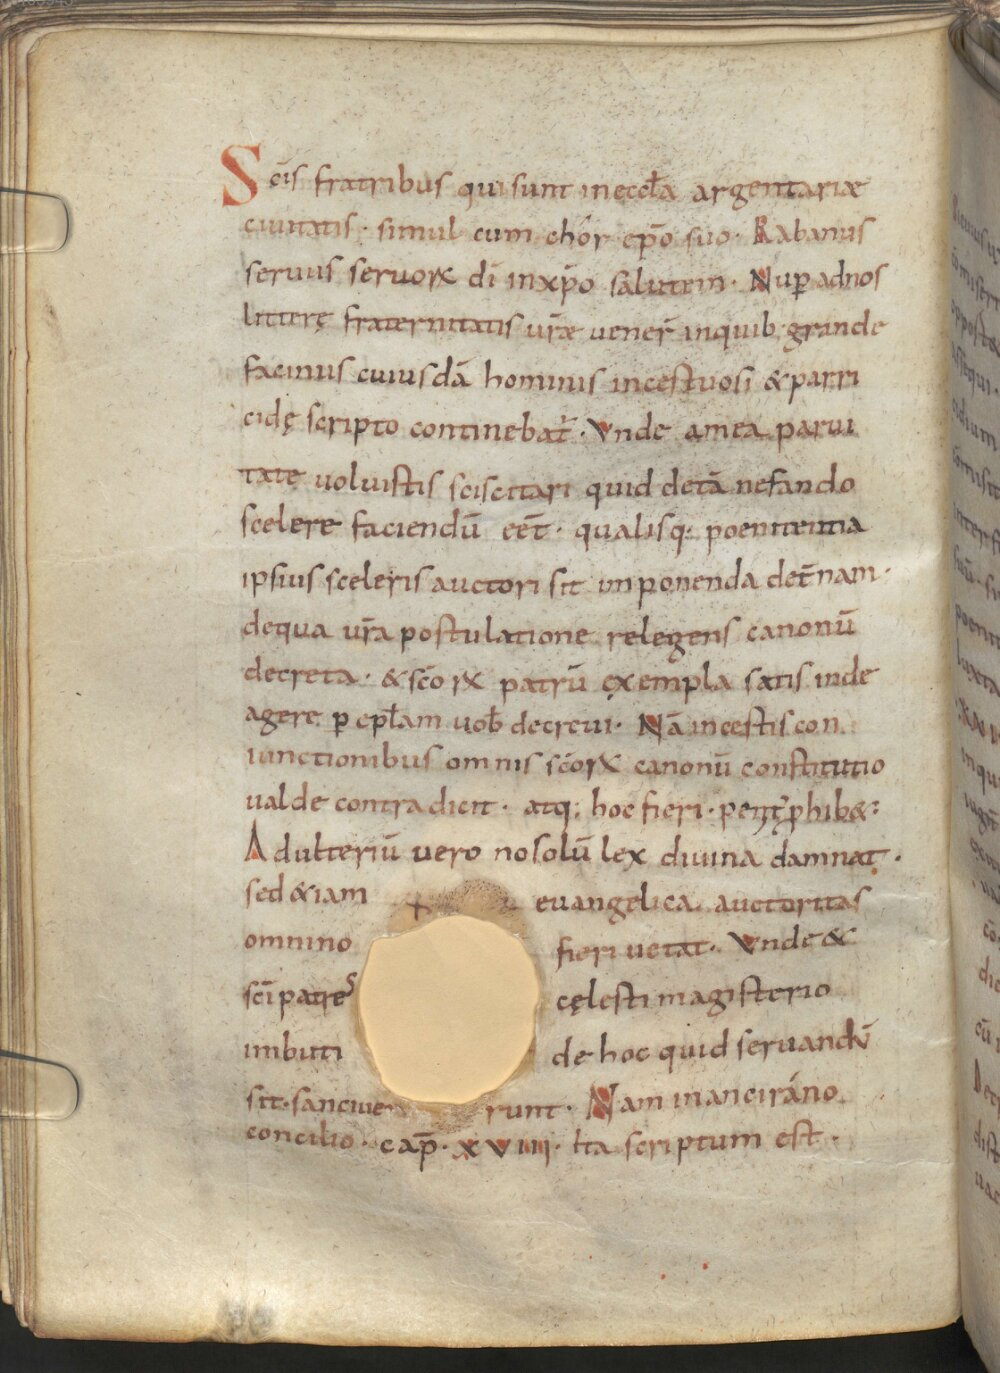 Sc̄is fratribus qui sunt in eccl̄a argentariæ
ciuitatis · simul cum chōr ep̄o suo · Rabanus
seruus seruorꝝ dī in xp̄o salutem · Nuꝑ ad nos
litterę fraternitatis ur̄æ uener̄ in quib; grande
facinus cuiusdā hominis incestuosi & parri
cidę scripto continebat᷑ · Vnde a mea parui
tate uoluistis sciscitari quid de tā nefando
scelere faciendū eēt · qualisq; poenitentia
ipsius sceleris auctori sit imponenda · det̄nam ·
de qua ur̄a postulatione relegens canonū
decreta · & sc̄orꝝ patrū exempla satis inde
agere ꝑ epl̄am uob̄ decreui · Nā incestis con
iunctionibus omnis sc̄orꝝ canonū constitutio
ualde contradicit · atq; hoc fieri · penit᷑ phib& :
Adulteriū uero no solū lex diuina damnat ·
sed &iam euangelica auctoritas
omnino fieri uetat · Vnde &
sc̄i patres cęlesti magisterio
imbuti de hoc quid seruandū
sit · sanciuerunt · Nam in anciráno
concilio · cap̄ · xviiii · Ita scriptum est ·